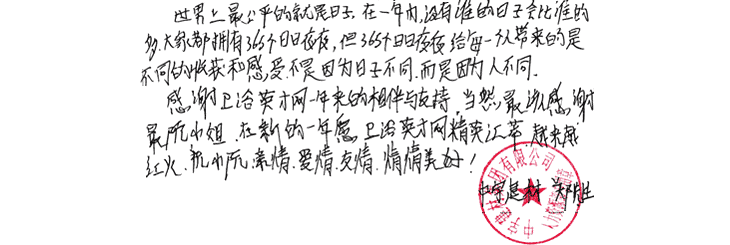 世界上最公平的就是日子.在一年内,没有谁的日子会比谁的
多.大家都拥有365个日日夜夜,但365个日日夜夜给每一个人带来的是
不同的收获和感受.不是因为日子不同.而是因为人不同.
感谢卫浴英才网一年来的相伴与支持.当然,最感谢
最阮小姐.在新的一年愿卫浴英才网精英汇萃.越来越
红火.祝小阮:亲情.爱情.友情.情情美好!
中宇建材
集团有限公司